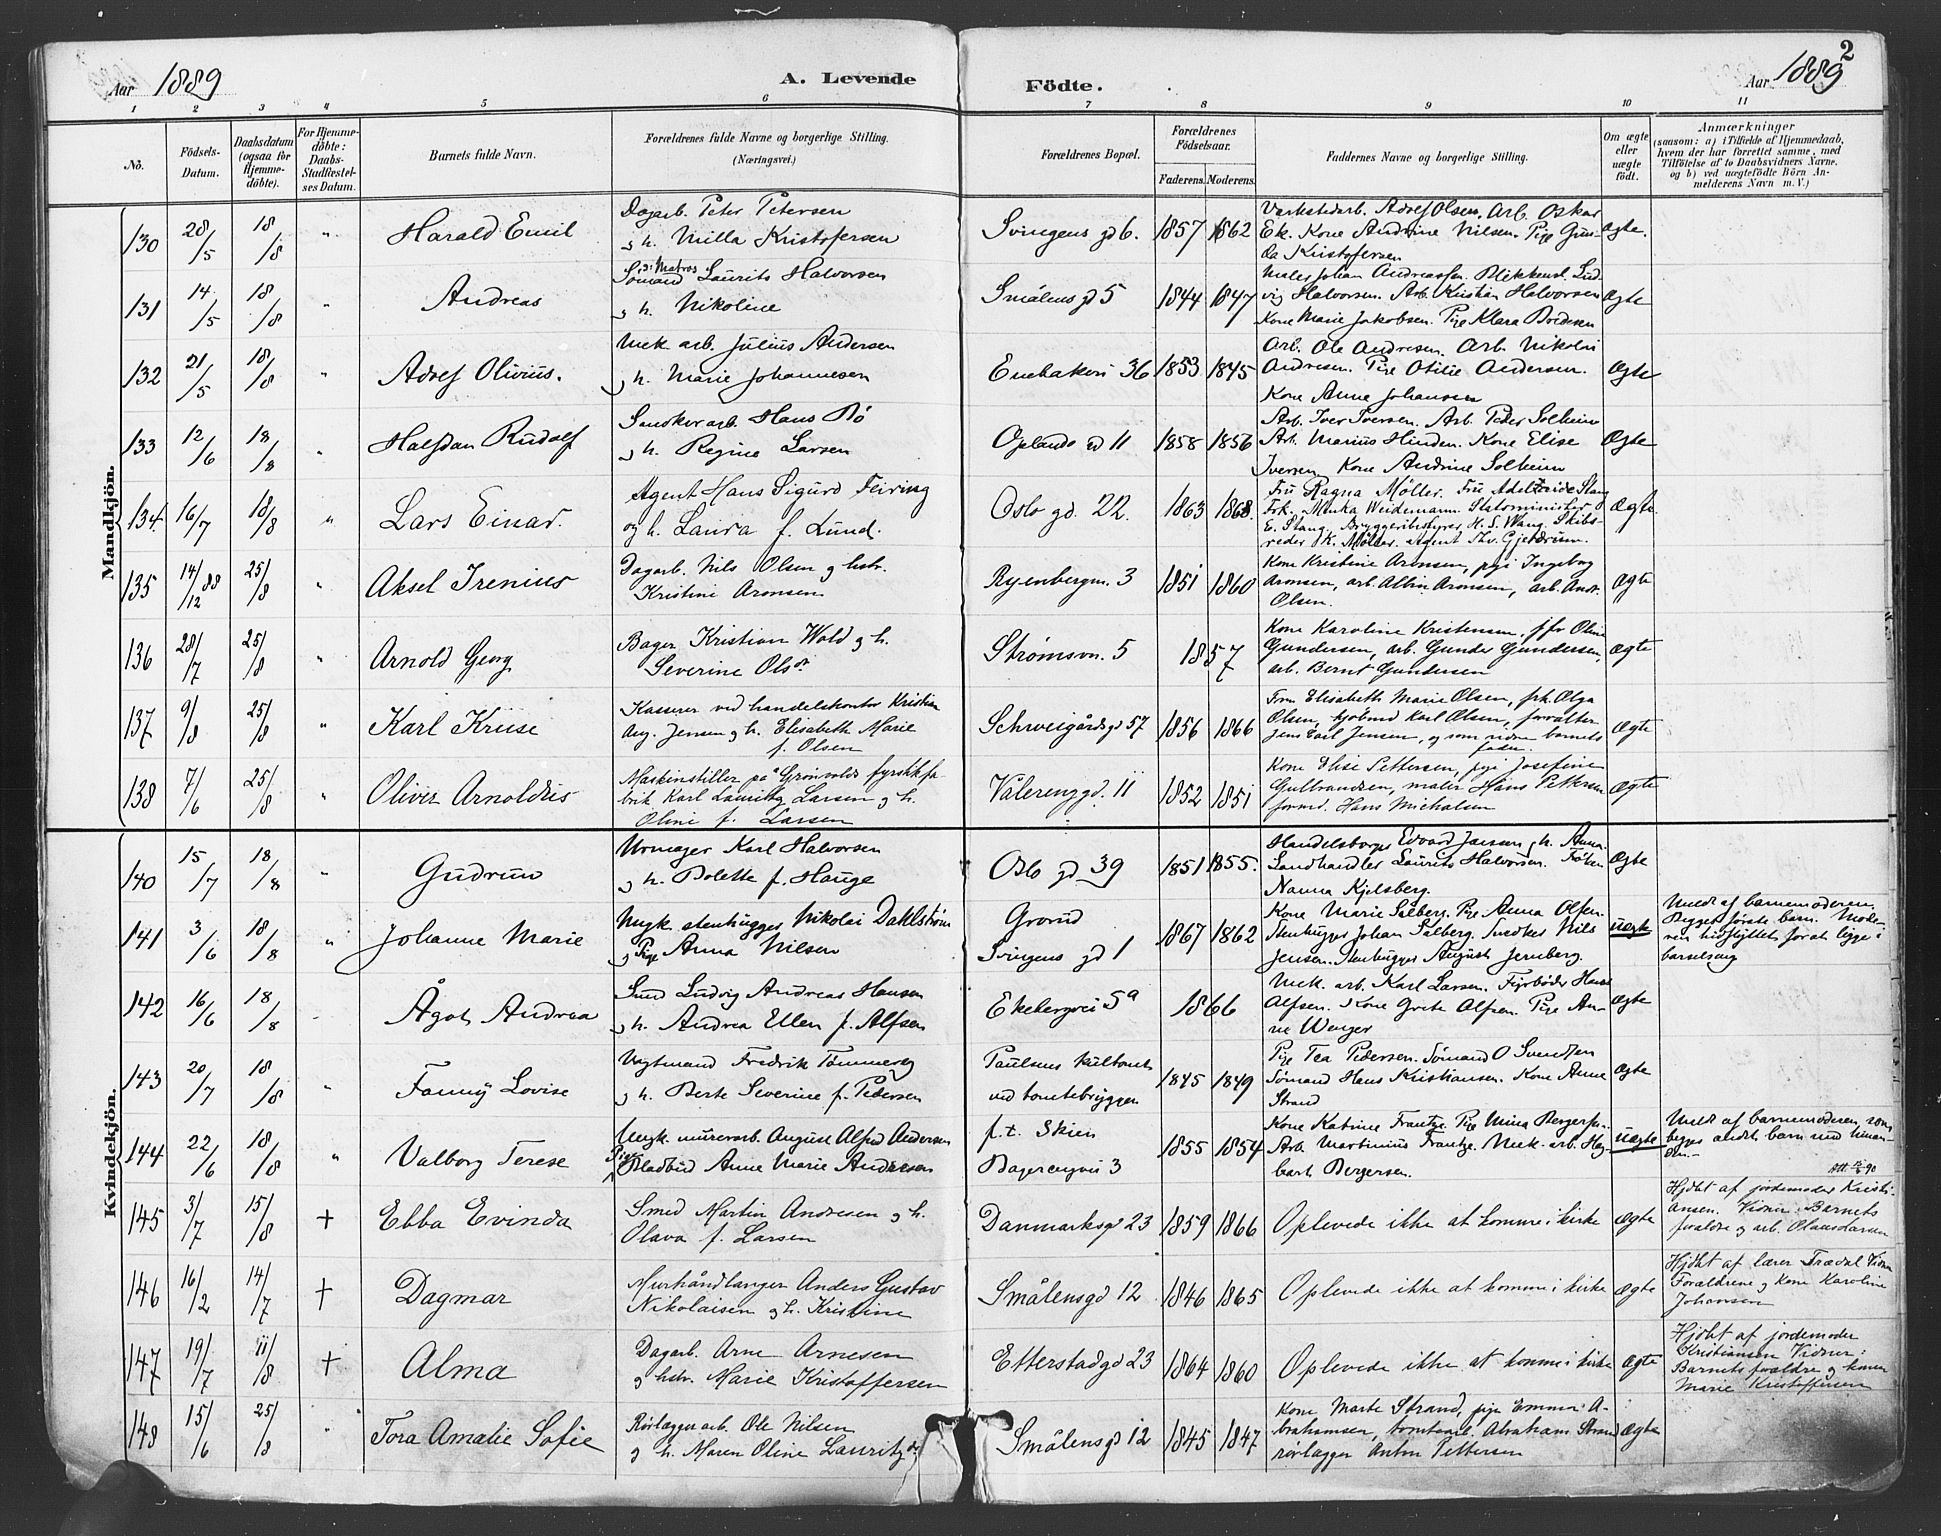 Aar 1889
A. Levende Födte.
Aar 1889
2
1 2 3 4 5 6 7 8 9 10 11
No.
Födsels-Datum.
Daabsdatum (ogsaa for Hjemmedöbte).
For Hjemmedöbte: Daabs-Stadfæstelses Datum.
Barnets fulde Navn.
Forældrenes fulde Navne og borgerlige Stilling. (Næringsvei.)
Forældrenes Bopæl.
Forældrenes Födselsaar.
Faderens. Moderens.
Faddernes Navne og borgerlige Stilling.
Om ægte eller uægte födt.
Anmærkninger
(saasom: a) i Tilfælde af Hjemmedaab, hvem der har forrettet samme, med Tilföielse af to Daabsvidners Navne. og b) ved uægtefödte Börn Anmelderens Navn m. V.)
Mandkjön.
130 28/5 18/8 " Harald Emil
Dagarb. Peter Petersen
og h. Milla Kristofersen
Svingens gd 6. 1857 1862
Værkstedarb. Adolf Olsen. Arb. Oskar
Ek. Kone Andrine Nilsen. Pige Gun-
da Kristofersen
Ægte.
131 14/5 18/8 " Andreas
Sömand Laurits Halvorsen
og h. Nikoline
Smålens gd 5 1844 1847
Maler Johan Andreassen. Blikkensl. Lud-
vig Halvorsen. Arb. Kristian Halvorsen
Kone Marie Jakobsen. Pige Klara Bredesen
Ægte
132 21/5 18/8 " Adolf Olivius.
Mek. arb. Julius Andersen
og h. Marie Johannesen
Enebakvei 36 1853 1845
Arb. Ole Andresen. Arb. Nikolai
Andresen. Pige Otilie Andersen.
Kone Anne Johansen
Ægte
133 12/6 18/8 " Halfdan Rudolf
Snedkerarb. Hans Bö
og h. Regine Larsen
Oplands gd 11 1858 1856
Arb. Iver Iversen. Arb. Peder Solheim
Arb. Marius Linden. Kone Elise
Iversen Kone Andrine Solheim
Ægte
134 16/7 18/8 " Lars Einar.
Agent Hans Sigurd Feiring
og h. Laura f. Lund.
Oslo gd. 22. 1863 1868.
Fru Ragna Möller. Fru Adelheide Stang
Frk. Minka Weidemann. Statsminister
E. Stang. Bryggeribestyrer H. S. Wang. Skibs-
reder K. Möller. Agent Thv. Gjerdrum.
Ægte
135 14/12 88 25/8 " Aksel Irenius
Dagarb. Nils Olsen og hstr.
Kristine Aronsen
Ryenbergvn. 3 1851 1860
Kone Kristine Aronsen, pige Ingeborg
Aronsen, arb. Albin Aronsen, arb. Andr.
Olsen.
Ægte
136 28/7 25/8 " Arnold Georg
Bager Kristian Wold og h.
Severine Olsdr.
Strømsvn. 5 1857
Kone Karoline Kristensen, jfr Oline
Gundersen, arb. Gunder Gundersen,
arb. Bernt Gundersen
Ægte
137 9/8 25/8 " Karl Kruse
Kasserer ved handelskontor Kristian
Aug. Jensen og h. Elisabeth Marie
f. Olsen
Schweigårdsgd 57 1856 1866
Fru Elisabeth Marie Olsen, frk. Olga
Olsen, kjøbmd Karl Olsen, forvalter
Jens Carl Jensen, og som vidne barnets
fader.
Ægte
138 7/6 25/8 " Oliver Arnoldus
Maskinstiller på Grönvolds fyrstikfa-
brik Karl Lauritz Larsen og h.
Oline f. Larsen
Vålerenggd. 11 1852 1851
Kone Elise Pettersen, pige Josefine
Gulbrandsen, maler Hans Pettersen
formd. Hans Michalsen
Ægte
Kvindekjön.
140 15/7 18/8 " Gudrun
Urmager Karl Halvorsen
og h. Bolette f. Hauge
Oslo gd 39 1851 1855.
Handelsborger Edvard Jansen og h. Anna.
Landhandler Laurits Halvorsen. Fröken
Nanna Kjelsberg.
Ægte
141 3/6 18/8 " Johanne Marie
Ungk. stenhugger Nikolai Dahlström
og Pige Anna Nilsen
Grorud
Svingens gd 1 1867 1862
Kone Marie Salberg. Pige Anna Olsen.
Stenhugger Johan Salberg. Snedker Nils
Jensen. Stenhugger August Jernberg.
uægte
Meldt af barnemoderen.
Begges første barn. Mode-
ren hidflyttet for at ligge i
barselseng
142 16/6 18/8 Ågot Andrea
Smed Ludvig Andreas Hansen
og h. Andrea Ellen f. Alfsen
Ekebergvei 5a 1866
Mek. arb. Karl Larsen. Fyrböder Hans
Alfsen. Kone Grete Alfsen. Pige An-
ne Wenger
Ægte
143 20/7 18/8 " Fanny Lovise
Vagtmand Fredrik Tömmerberg
og h. Berte Severine f. Pedersen
Paulsens kultomt
ved tomtebryggen 1845 1849
Pige Tea Pedersen. Sömand O Svendsen
Sömand Hans Kristiansen. Kone Anne
Strand
Ægte
144 22/6 18/8 " Valborg Terese
Ungk. murerarb. August Alfred Andersen
Pige Bladbud Anne Marie Andresen
f. t. Skien
Dagerengvei 3 1855 1854
Kone Katrine Frantze. Pige Mina Bergersen.
Arb. Martinius Frantze. Mek. arb. Hag-
bart Bergersen.
uægte
Meldt af barnemoderen, som
begges andet barn med hinan-
den.
145 3/7 15/8 + Ebba Evinda
Smed Martin Andresen og h.
Olava f. Larsen
Danmarksgd 23 1859 1866
Oplevede ikke at komme i kirke
Ægte
Hjdbt af jordemoder Kristi-
ansen. Vidner: Barnets
forældre og arb. Olaus Larsen
146 16/2 14/7 + Dagmar
Murhåndlanger Anders Gustav
Nikolaisen og h. Kristine
Smålensgd 12 1846 1865
Oplevede ikke at komme i kirke
Ægte
Hjdbt af lærer Trædal Vidn
Forældrene og kone Karoline
Johansen
147 19/7 11/8 + Alma
Dagarb. Arne Arnesen
og hstr. Marie Kristoffersen
Etterstadgd 23 1864 1860
Oplevede ikke at komme i kirke
Ægte
Hjdbt af jordemoder
Kristiansen Vidner:
Barnets forældre og kone
Marie Kristoffersen
148 15/6 25/8 " Tora Amalie Sofie
Rørlæggerarb. Ole Nilsen
og h. Maren Oline Lauritzdr
Smålensgd 12 1845 1847
Kone Marte Strand, pige Emma A-
brahamsen, tomtearb. Abraham Strand
rørlægger Anton Pettersen
Ægte